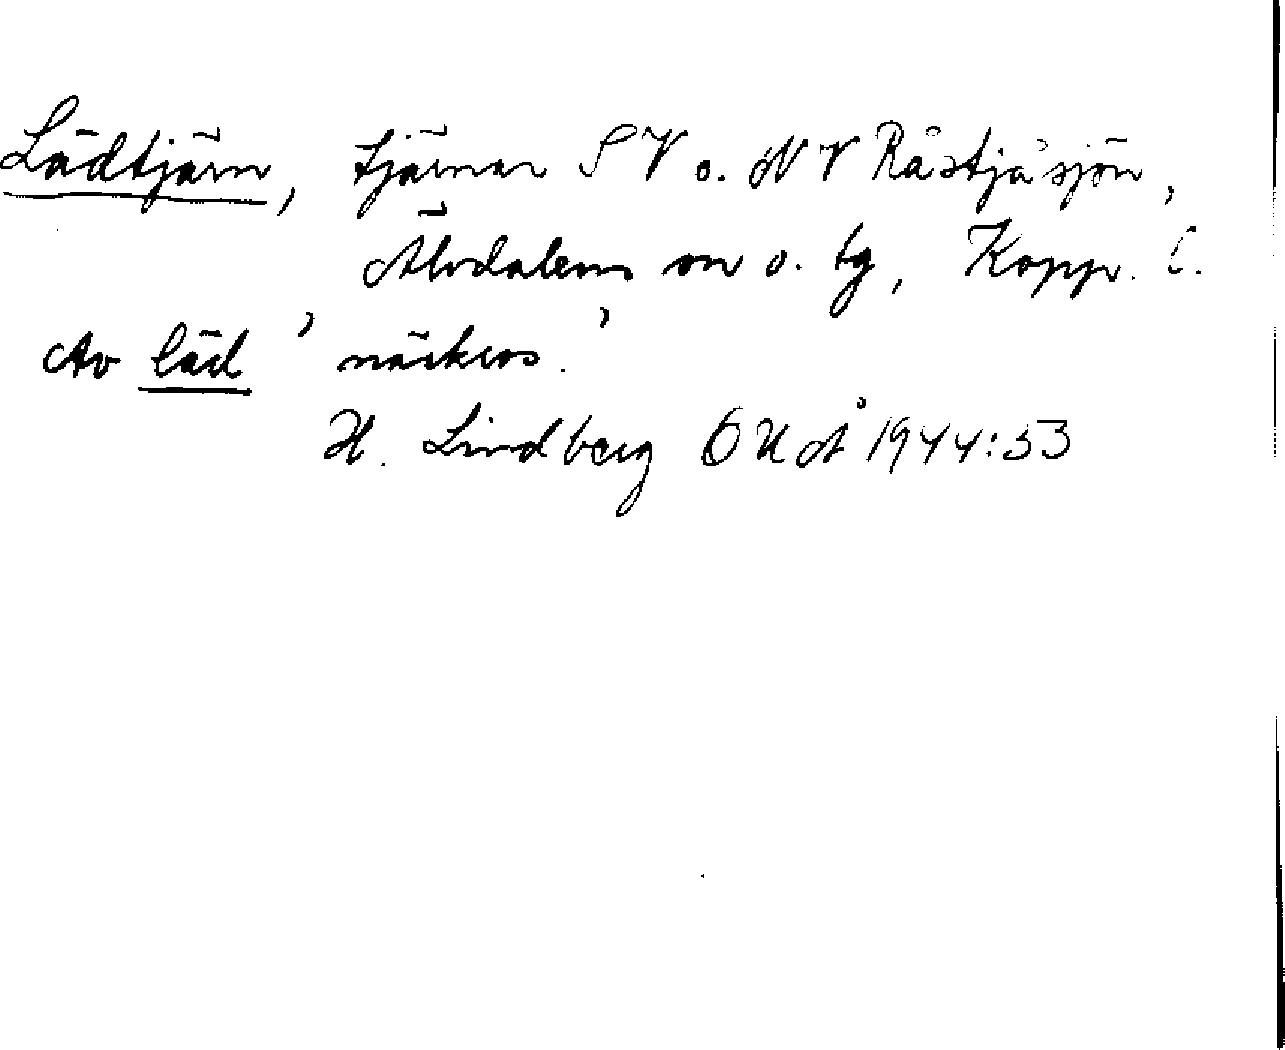 Lädtjärn, tjärnar SV o. NV Råstjåsjön,
Älvdalens sn o. tg, Kopp. l.
Av läd 'näckros.'
H. Lindberg OUÅ 1944:53